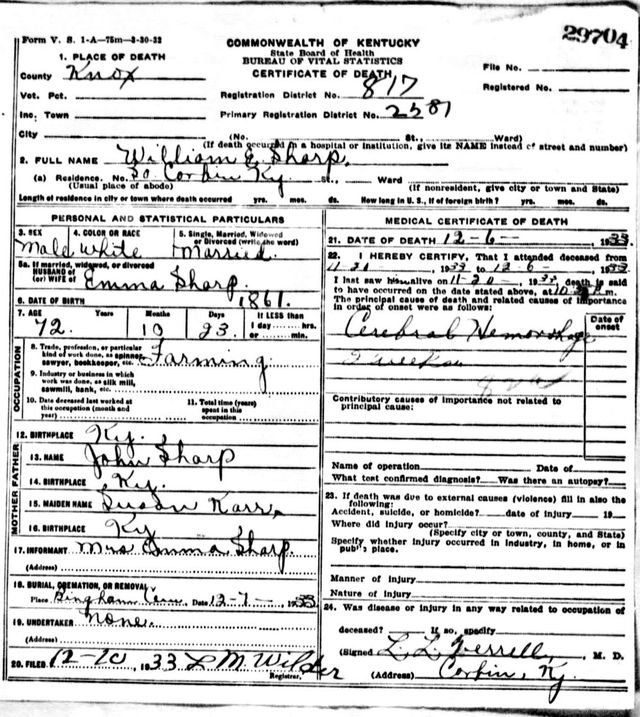 Form V. S. 1-A—75m—3-30-32
29704
COMMONWEALTH OF KENTUCKY
State Board of Health
BUREAU OF VITAL STATISTICS
CERTIFICATE OF DEATH
1. PLACE OF DEATH
County Knox
Vot. Pct.
Inc. Town
City
Registration District No. 817
Primary Registration District No. 2581
File No.
Registered No.
(No. St., Ward)
(If death occurred in a hospital or institution, give its NAME instead of street and number)
2. FULL NAME William E. Sharp.
(a) Residence. No. So. Corbin Ky. St., Ward
(Usual place of abode) (If nonresident, give city or town and State)
Length of residence in city or town where death occurred yrs. mos. ds. How long in U. S., if of foreign birth? yrs. mos. ds.
PERSONAL AND STATISTICAL PARTICULARS
3. SEX 4. COLOR OR RACE 5. Single, Married, Widowed
or Divorced (write the word)
Male White Married.
5a. If married, widowed, or divorced
HUSBAND of
(or) WIFE of Emma Sharp.
6. DATE OF BIRTH 1861.
7. AGE Years Months Days If LESS than
1 day hrs.
or min.
72. 10 23.
OCCUPATION
8. Trade, profession, or particular
kind of work done, as spinner,
sawyer, bookkeeper, etc. Farming
9. Industry or business in which
work was done, as silk mill,
sawmill, bank, etc.
10. Date deceased last worked at
this occupation (month and
year)
11. Total time (years)
spent in this
occupation
12. BIRTHPLACE Ky.
FATHER
13. NAME John Sharp
14. BIRTHPLACE Ky.
MOTHER
15. MAIDEN NAME Susan Karr.
16. BIRTHPLACE Ky
17. INFORMANT Mrs Emma Sharp.
(Address)
18. BURIAL, CREMATION, OR REMOVAL
Place Bingham Cem. Date 12-7- 1933
19. UNDERTAKER None.
(Address)
20. FILED 12-20, 1933 L M Wilder
Registrar.
MEDICAL CERTIFICATE OF DEATH
21. DATE OF DEATH 12-6- 1933.
22. I HEREBY CERTIFY, That I attended deceased from
11-21, 1933 to 12-6-, 1933.
I last saw him alive on 11-20, 1933 death is said
to have occurred on the date stated above, at m.
The principal cause of death and related causes of importance
in order of onset were as follows:
Date of
onset
Cerebral Hemorrhage
Contributory causes of importance not related to
principal cause:
Name of operation Date of
What test confirmed diagnosis? Was there an autopsy?
23. If death was due to external causes (violence) fill in also the
following:
Accident, suicide, or homicide? date of injury 19
Where did injury occur?
(Specify city or town, county, and State)
Specify whether injury occurred in industry, in home, or in
public place.
Manner of injury
Nature of injury
24. Was disease or injury in any way related to occupation of
deceased? If so, specify
(Signed L. L. Terrell, M. D.
(Address) Corbin, Ky.